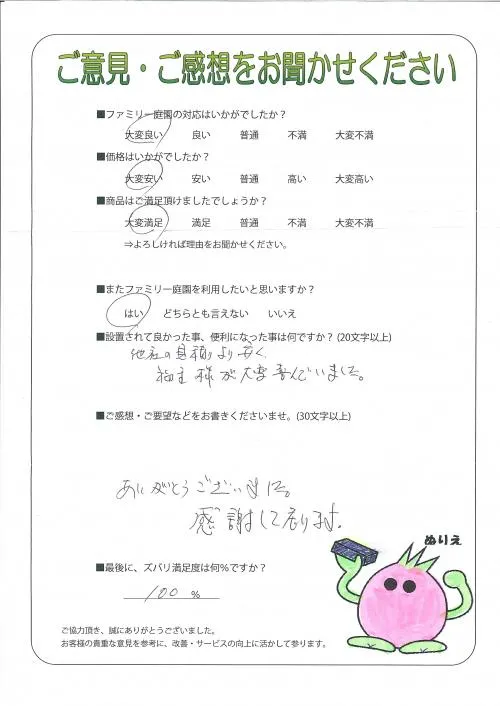 ご意見・ご感想をお聞かせください
■ファミリー庭園の対応はいかがでしたか？
大変良い 良い 普通 不満 大変不満
■価格はいかがでしたか？
大変安い 安い 普通 高い 大変高い
■商品はご満足頂けましたでしょうか？
大変満足 満足 普通 不満 大変不満
⇒よろしければ理由をお聞かせください。
■またファミリー庭園を利用したいと思いますか？
はい どちらとも言えない いいえ
■設置されて良かった事、便利になった事は何ですか？(20文字以上)
他社の見積りより安く
施主様が大変喜んでいました。
■ご感想・ご要望などをお書きくださいませ。(30文字以上)
ありがとうございました。
感謝して居ります。
ぬりえ
■最後に、ズバリ満足度は何％ですか？
100 %
ご協力頂き、誠にありがとうございました。
お客様の貴重な意見を参考に、改善・サービスの向上に活かして参ります。